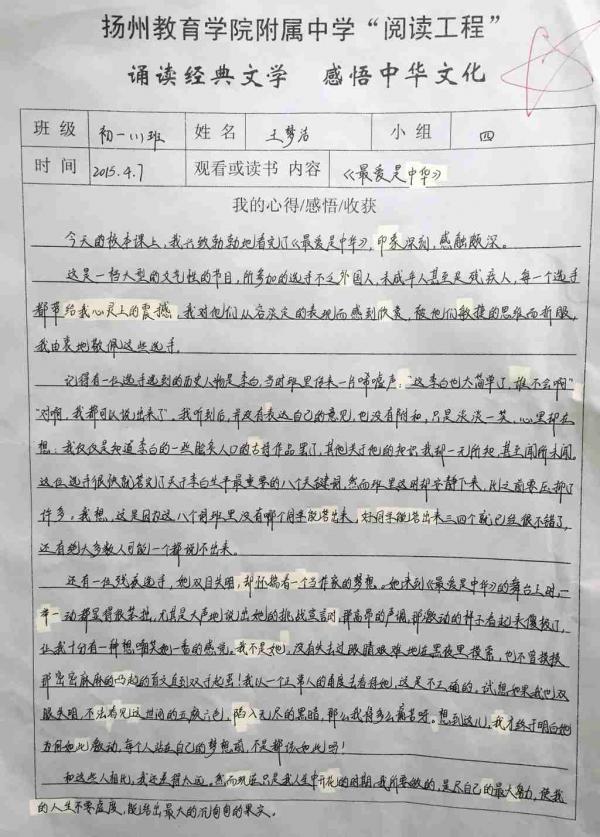 扬州教育学院附属中学“阅读工程”
诵读经典文学 感悟中华文化
班级 初一(1)班 姓名 王梦洁 小组 四
时间 2015.4.7 观看或读书 内容 《最爱是中华》
我的心得/感悟/收获
今天的校本课上,我兴致勃勃地看完了《最爱是中华》,印象深刻,感触颇深。
这是一档大型的文艺性的节目,所参加的选手不乏外国人,未成年人甚至是残疾人,每一个选手
都带给我心灵上的震撼,我对他们从容淡定的表现而感到欣赏,被他们敏捷的思维而折服,
我由衷地敬佩这些选手。
记得有一位选手选到的历史人物是李白,当时班里传来一片唏嘘声:“这李白也太简单了,谁不会啊”
“对啊,我都可以说出来了”。我听到后,并没有表达自己的意见,也没有附和,只是淡淡一笑,心里却在
想:我仅仅是知道李白的一些脍炙人口的古诗作品罢了,其他关于他的知识我却一无所知,甚至闻所未闻。
这位选手很快就答完了关于李白生平最重要的八个关键词,然而班里这时却安静下来,比之前要压抑了
许多。我想,这是因为这八个词班里没有哪个同学能答出来,好同学能答出来三四个就已经很不错了,
还有绝大多数人可能一个都说不出来。
还有一位残疾选手,她双目失明,却怀揣着一个当作家的梦想。她来到《最爱是中华》的舞台上时,一
举一动都显得很笨拙,尤其是大声地说出她的挑战宣言时,那高昂的声调,那激动的样子看起来傻极了,
让我十分有一种想嘲笑她一番的感觉。我不是她,没有失去过眼睛艰难地在黑夜里摸索,也不曾摸摸
那密密麻麻的凸起的盲文直到双手起茧!我以一个正常人的角度去看待她,这是不正确的,试想如果我也双
眼失明,不法看见这世间的五颜六色,陷入无尽的黑暗,那么我将多么痛苦呀。想到这儿,我才终于明白她
为何如此激动,每个人站在自己的梦想前,不是都该如此吗!
和这些人相比,我还差得太远。然而现在只是我人生中开花的时期,我所要做的,是尽自己的最大努力,使我
的人生不要虚度,能结出最大的沉甸甸的果实。